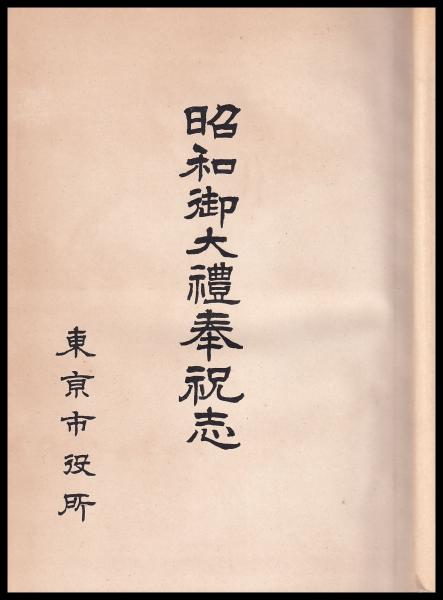 昭和御大禮奉祝志
東京市役所